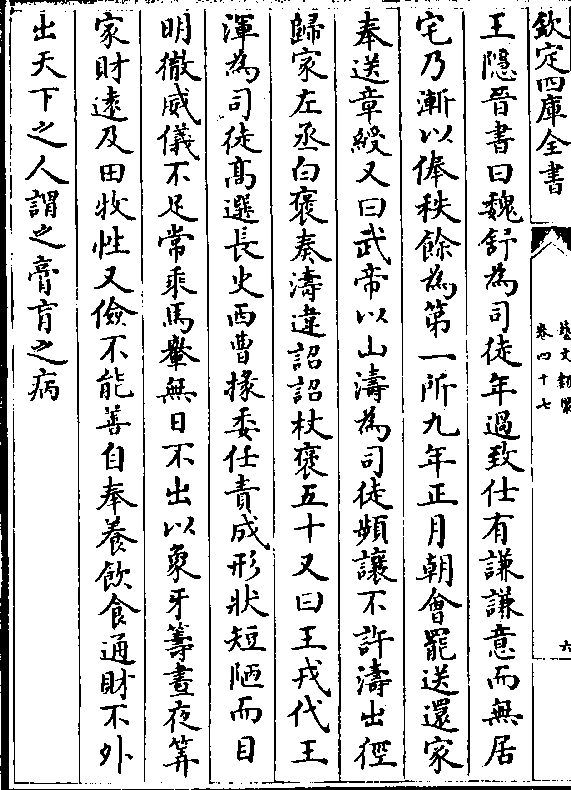 欽定四庫全書
藝文類聚
卷四十七
六
王隱晉書曰魏舒為司徒年過致仕有謙謙意而無居
宅乃漸以俸秩餘為第一所九年正月朝會罷送還家
奉送章綬又曰武帝以山濤為司徒頻讓不許濤出徑
歸家左丞白褒奏濤違詔詔杖褒五十又曰王戎代王
渾為司徒高選長史西曹掾委任責成形狀短陋而目
明徹威儀不足常乘馬轝無日不出以象牙籌晝夜筭
家財遠及田牧性又儉不能善自奉養飲食通財不外
出天下之人謂之膏肓之病